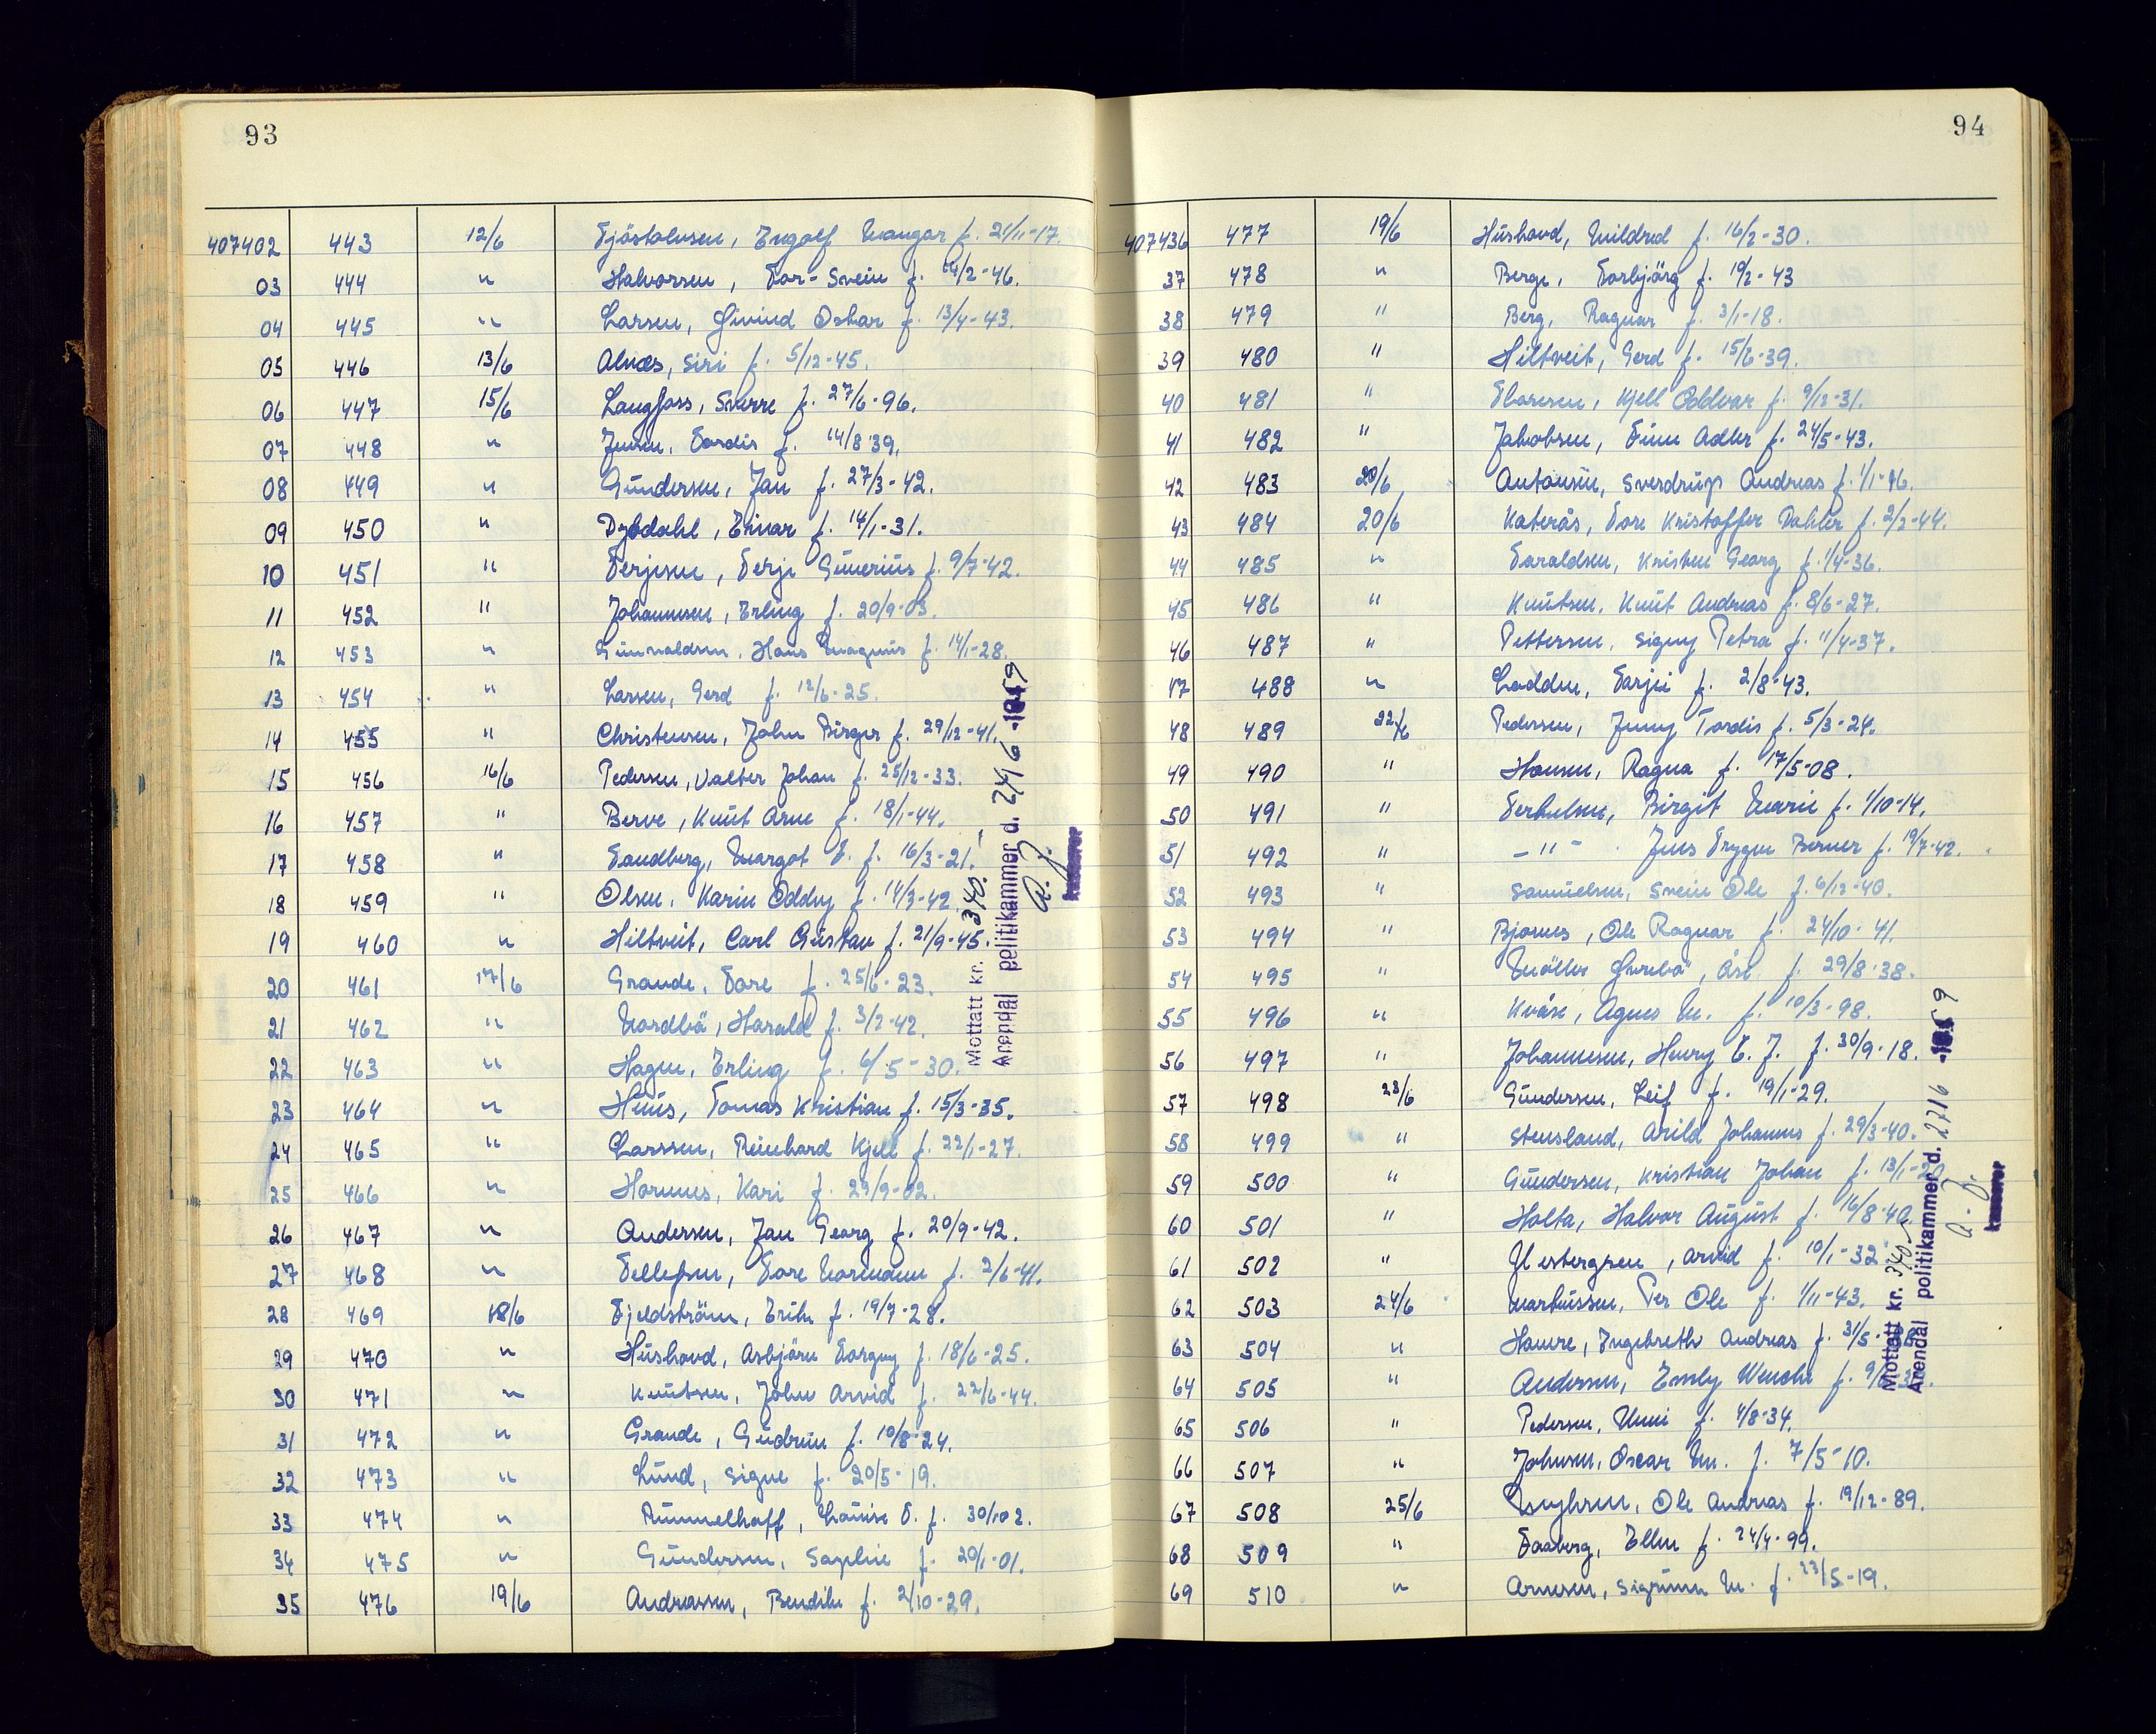 93
407402 443 12/6 Tjöstolvsen, Ingolf Mangar f. 21/11-17.
03 444 " Halvorsen, Tor-Svein f. 14/2-46.
04 445 " Larsen, Øivind Oskar f. 13/4-43.
05 446 13/6 Alnæs, Siri f. 5/12-45.
06 447 15/6 Langfoss, Sverre f. 27/6-96.
07 448 " Jensen, Tordis f. 14/8 39.
08 449 " Gundersen, Jan f. 27/3-42.
09 450 " Dybdahl, Einar f. 14/1-31.
10 451 " Terjesen, Terje Gunerius f. 9/7-42.
11 452 " Johannesen, Erling f. 20/9-03.
12 453 " Gunvaldsen, Hans Magnus f. 14/1-28.
13 454 " Larsen, Gerd f. 12/6-25.
14 455 " Christensen, John Birger f. 29/12-41.
15 456 16/6 Pedersen, Valter Johan f. 25/12-33.
16 457 " Berve, Knut Arne f. 18/1-44.
17 458 " Sandberg, Margot E. f. 16/3-21.
18 459 " Olsen, Karin Oddny f. 14/3-42.
19 460 " Hiltveit, Carl Gustav f. 21/9-45.
20 461 17/6 Grande, Tore f. 25/6-23.
21 462 " Nordbö, Harald f. 3/2-42.
22 463 " Hagen, Erling f. 6/5-30.
23 464 " Huus, Tomas Kristian f. 15/3-35.
24 465 " Larssen, Reinhard Kjell f. 22/1-27.
25 466 " Hornnes, Kari f. 29/9-02.
26 467 " Andersen, Jan Georg f. 20/9-42.
27 468 " Tellefsen, Tore Normann f. 2/6-41.
28 469 18/6 Fjeldström, Erik f. 19/7-28.
29 470 " Hushovd, Asbjörn Torgny f. 18/6-25.
30 471 " Knutsen, John Arvid f. 22/6-44.
31 472 " Grande, Gudrun f. 10/8-24.
32 473 " Lund, Signe f. 20/5-19.
33 474 " Rummelhoff, Louise O. f. 30/10 2.
34 475 " Gundersen, Sophie f. 20/1-01.
35 476 19/6 Andreassen, Bendik f. 2/10-29.
Mottatt kr. 340.-
Arendal politikammer d. 24/6-1959
A. J.
kasserer
94
407436 477 19/6 Hushovd, Mildred f. 16/2-30.
37 478 " Berge, Torbjörg f. 10/2-43
38 479 " Berg, Ragnar f. 3/1-18.
39 480 " Hiltveit, Gerd f. 15/6-39.
40 481 " Thoresen, Kjell Oddvar f. 9/12-31.
41 482 " Jakobsen, Finn Adler f. 24/5-43.
42 483 20/6 Antonsen, Sverdrup Andreas f. 1/1-16.
43 484 20/6 Katerås, Tore Kristoffer Dahler f. 2/2-44.
44 485 " Taraldsen, Kristen Georg f. 1/4-36.
45 486 " Knutsen, Knut Andreas f. 8/6-27.
46 487 " Pettersen, Signy Petra f. 11/4-37.
47 488 " Lodden, Tarjei f. 2/8-43.
48 489 22/6 Pedersen, Jenny Tordis f. 5/3-24.
49 490 " Hansen, Ragna f. 17/5-08.
50 491 " Terkelsen, Birgit Marie f. 1/10-14.
51 492 " - " - Jens Trygve Berner f. 19/7-42.
52 493 " Samuelsen, Svein Ole f. 6/12-40.
53 494 " Bjornes, Ole Ragnar f. 24/10-41.
54 495 " Möller Åse f. 29/8-38.
55 496 " Kvåse, Agnes M. f. 10/3-98.
56 497 " Johannesen, Henry E. J. f. 30/9-18.
57 498 23/6 Gundersen, Leif f. 19/1-29.
58 499 " Stensland, Arild Johannes f. 29/3-40.
59 500 " Gundersen, Kristian Johan f. 13/1-
60 501 " Holta, Halvor August f. 16/8-40.
61 502 " Glestergreen, Arvid f. 10/1-32
62 503 24/6 Markussen, Per Ole f. 1/11-43.
63 504 " Havre, Ingebreth Andreas f. 31/5-
64 505 " Andersen, Emly Wenche f. 9/
65 506 " Pedersen, Unni f. 4/8-34.
66 507 " Johnsen, Oscar M. f. 7/5-10.
67 508 25/6 Ole Andreas f. 19/12-89.
68 509 " Taaberg, Ellen f. 24/4-99.
69 510 " Arnesen, Sigrunn M. f. 23/5-19.
Mottatt kr. 340.-
Arendal politikammer d. 27/6-1959
A. J.
kasserer